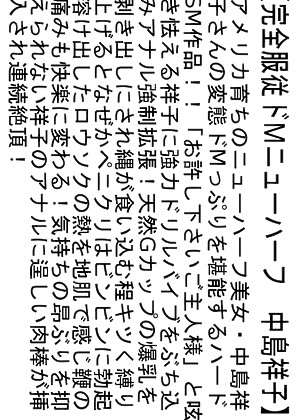 【完全服従ドMニューハーフ　中島祥子】
アメリカ育ちのニューハーフ美女・中島祥
子さんの変態ドMっぷりを堪能するハード
SM作品！！「お許し下さいご主人様」と呟
き怯える祥子に強力ドリルバイブをぶち込
みアナル強制拡張！天然Gカップの爆乳を
剥き出しにされ縄が食い込む程キツく縛り
上げるとなぜかペニクリはビンビンに勃起
溶け出したロウソクの熱を地肌で感じ鞭の
痛みも快楽に変わる！気持ちの昂ぶりを抑
えられない祥子のアナルに逞しい肉棒が挿
入され連続絶頂！